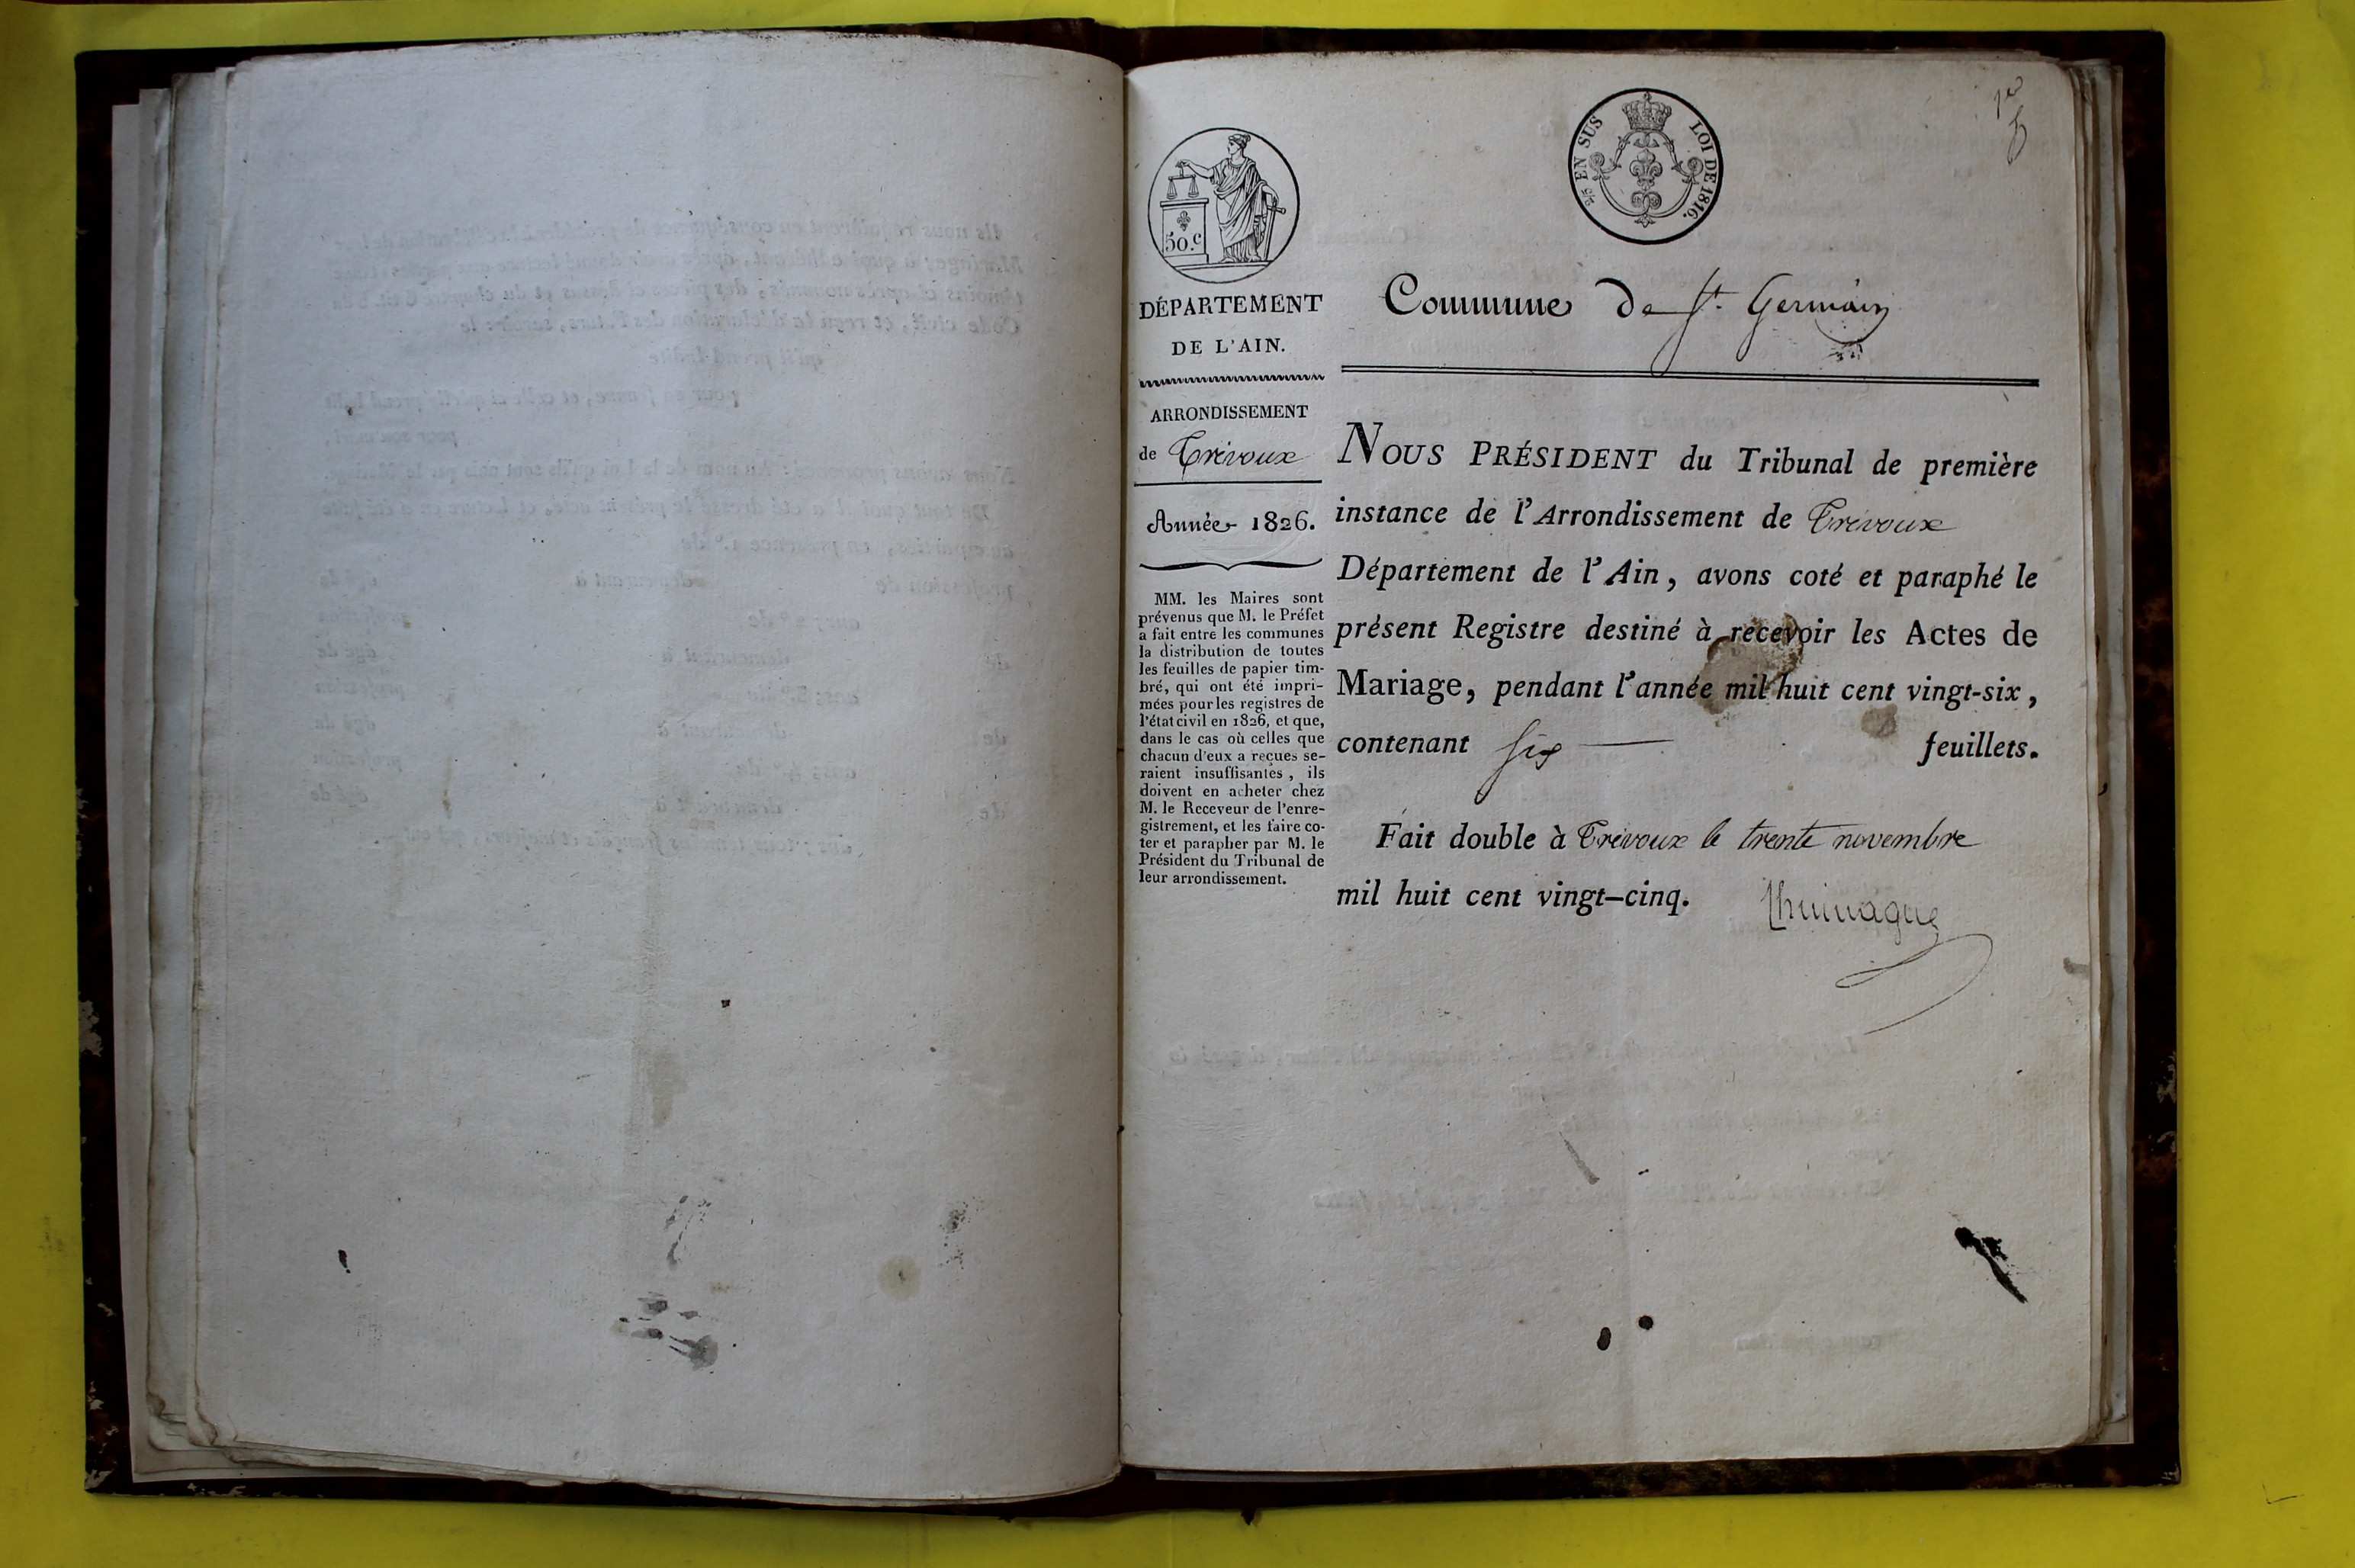 1er
⅖ EN SUS LOI DE 1816.
50.c
DÉPARTEMENT
DE L'AIN.
ARRONDISSEMENT
de Trévoux
Année 1826.
MM. les Maires sont
prévenus que M. le Préfet
a fait entre les communes
la distribution de toutes
les feuilles de papier tim-
bré, qui ont été impri-
mées pour les registres de
l'état civil en 1826, et que,
dans le cas où celles que
chacun d'eux a reçues se-
raient insuffisantes, ils
doivent en acheter chez
M. le Receveur de l'enre-
gistrement, et les faire co-
ter et parapher par M. le
Président du Tribunal de
leur arrondissement.
Commune de St. Germain
NOUS PRÉSIDENT du Tribunal de première
instance de l'Arrondissement de Trévoux
Département de l'Ain, avons coté et paraphé le
présent Registre destiné à recevoir les Actes de
Mariage, pendant l'année mil huit cent vingt-six,
contenant six feuillets.
Fait double à Trévoux le trente novembre
mil huit cent vingt-cinq.